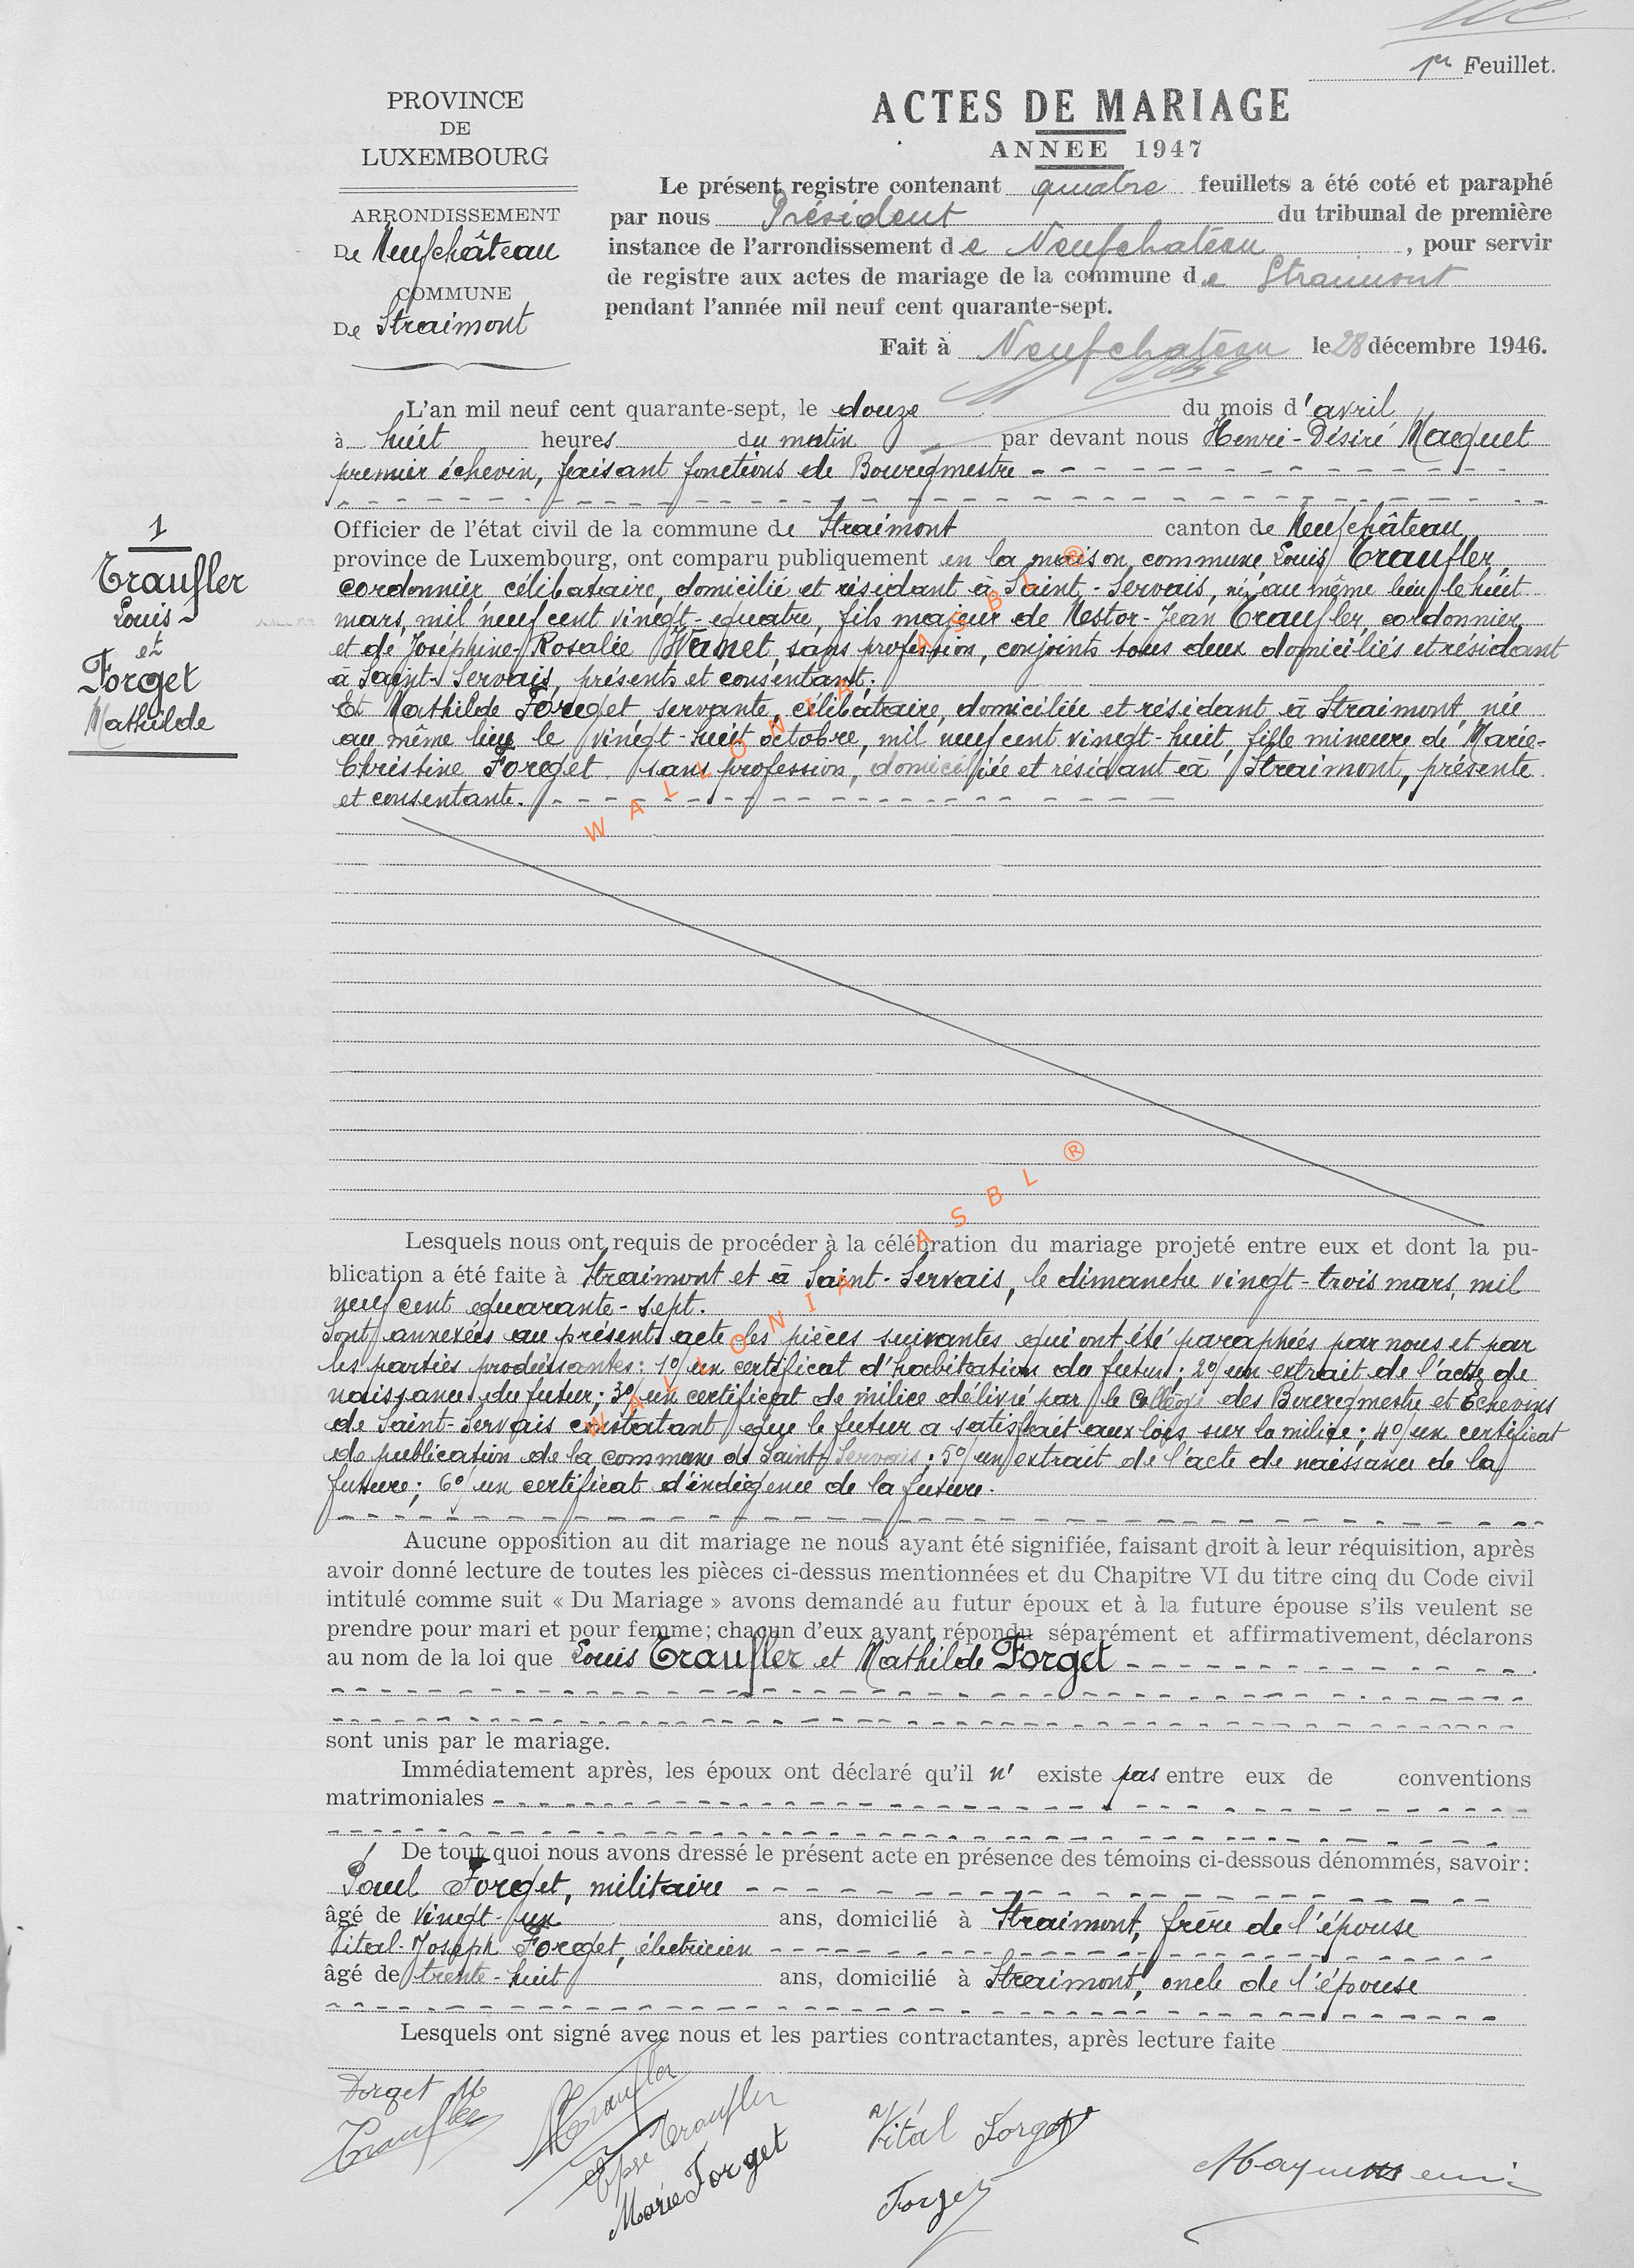 1er Feuillet.
PROVINCE
DE
LUXEMBOURG
ARRONDISSEMENT
De Neufchâteau
COMMUNE
De Straimont
ACTES DE MARIAGE
ANNEE 1947
Le présent registre contenant quatre feuillets a été coté et paraphé
par nous Président du tribunal de première
instance de l'arrondissement de Neufchateau, pour servir
de registre aux actes de mariage de la commune de Straimont
pendant l'année mil neuf cent quarante-sept.
Fait à Neufchateau le 28 décembre 1946.
L'an mil neuf cent quarante-sept, le douze du mois d'avril
à huit heures du matin par devant nous Henri-Désiré Maquet
premier échevin, faisant fonctions de Bourgmestre
1
Traufler
Louis
et
Forget
Mathilde
Officier de l'état civil de la commune de Straimont canton de Neufchâteau
province de Luxembourg, ont comparu publiquement en la maison commune Louis Traufler,
cordonnier célibataire, domicilié et résidant à Saint-Servais, né au même lieu le huit
mars, mil neuf cent vingt-quatre, fils majeur de Nestor-Jean Traufler, cordonnier
et de Joséphine-Rosalie Wanet, sans profession, conjoints tous deux domiciliés et résidant
à Saint-Servais, présents et consentant;
Et Mathilde Forget, servante, célibataire, domiciliée et résidant à Straimont, née
au même lieu le vingt-huit octobre, mil neuf cent vingt-huit, fille mineure de Marie-
Christine Forget sans profession, domiciliée et résidant à Straimont, présente
et consentante.
WALLONIA ASBL ®
Lesquels nous ont requis de procéder à la célébration du mariage projeté entre eux et dont la pu-
blication a été faite à Straimont et à Saint-Servais, le dimanche vingt-trois mars, mil
neuf cent quarante-sept.
Sont annexées au présent acte les pièces suivantes qui ont été paraphées par nous et par
les parties produisantes: 1º/ un certificat d'habitation du futur; 2º/ un extrait de l'acte de
naissance du futur; 3º/ un certificat de milice délivré par le Collège des Bourgmestre et Echevins
de Saint-Servais constatant que le futur a satisfait aux lois sur la milice; 4º/ un certificat
de publication de la commune de Saint-Servais; 5º/ un extrait de l'acte de naissance de la
future; 6º/ un certificat d'indigence de la future.
WALLONIA ASBL ®
Aucune opposition au dit mariage ne nous ayant été signifiée, faisant droit à leur réquisition, après
avoir donné lecture de toutes les pièces ci-dessus mentionnées et du Chapitre VI du titre cinq du Code civil
intitulé comme suit « Du Mariage » avons demandé au futur époux et à la future épouse s'ils veulent se
prendre pour mari et pour femme; chacun d'eux ayant répondu séparément et affirmativement, déclarons
au nom de la loi que Louis Traufler et Mathilde Forget
sont unis par le mariage.
Immédiatement après, les époux ont déclaré qu'il n' existe pas entre eux de conventions
matrimoniales
De tout quoi nous avons dressé le présent acte en présence des témoins ci-dessous dénommés, savoir:
Paul Forget, militaire
âgé de vingt-un ans, domicilié à Straimont, frère de l'épouse
Vital-Joseph Forget, électricien
âgé de trente-huit ans, domicilié à Straimont, oncle de l'épouse
Lesquels ont signé avec nous et les parties contractantes, après lecture faite
Forget M
Traufler
Traufler
Epse Traufler
Marie Forget
Vital Forget
Forget